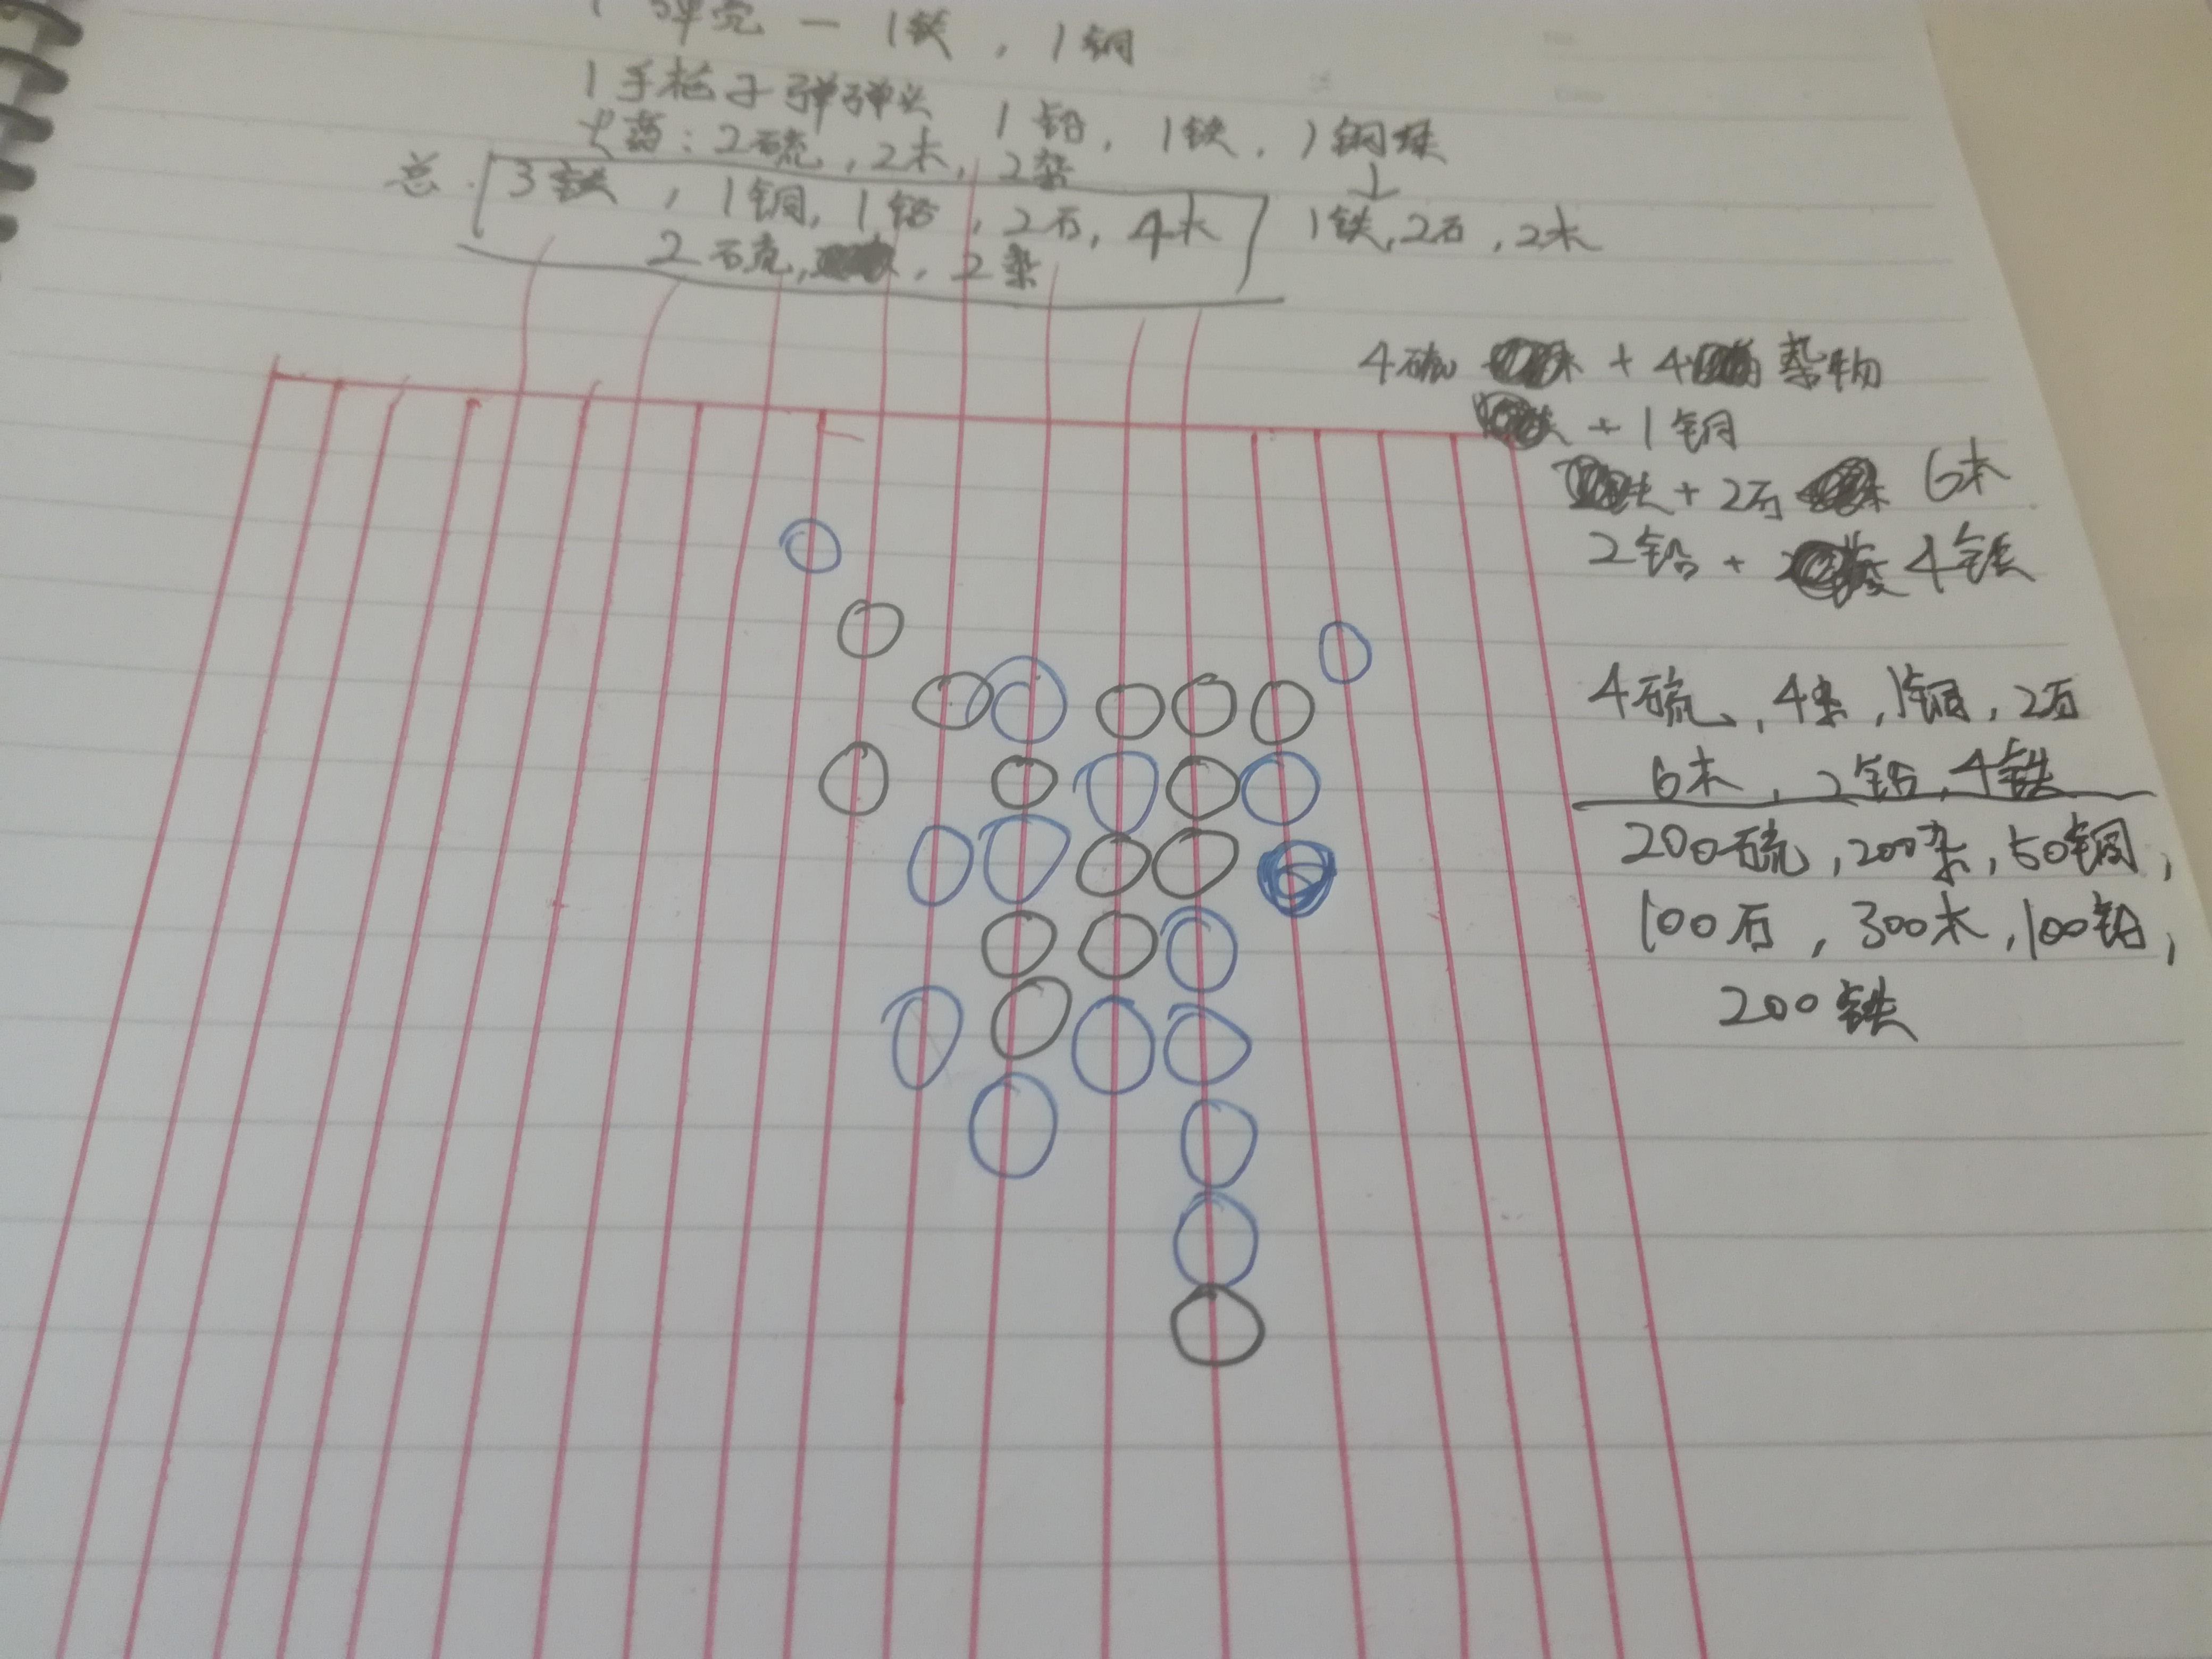 1 弹壳 — 1铁, 1铜
1手枪子弹弹头 1铅, 1铁, 1钢球
火药: 2硫, 2木, 2杂
↓
总. 3铁, 1铜, 1铅, 2石, 4木
1铁, 2石, 2木
2硫, , 2杂
4硫 + 4 杂物
+ 1铜
+ 2石 6木
2铅 + 4铁
4硫, 4杂, 1铜, 2石
6木, 2铅, 4铁
200硫, 200杂, 50铜,
100石, 300木, 100铅,
200铁